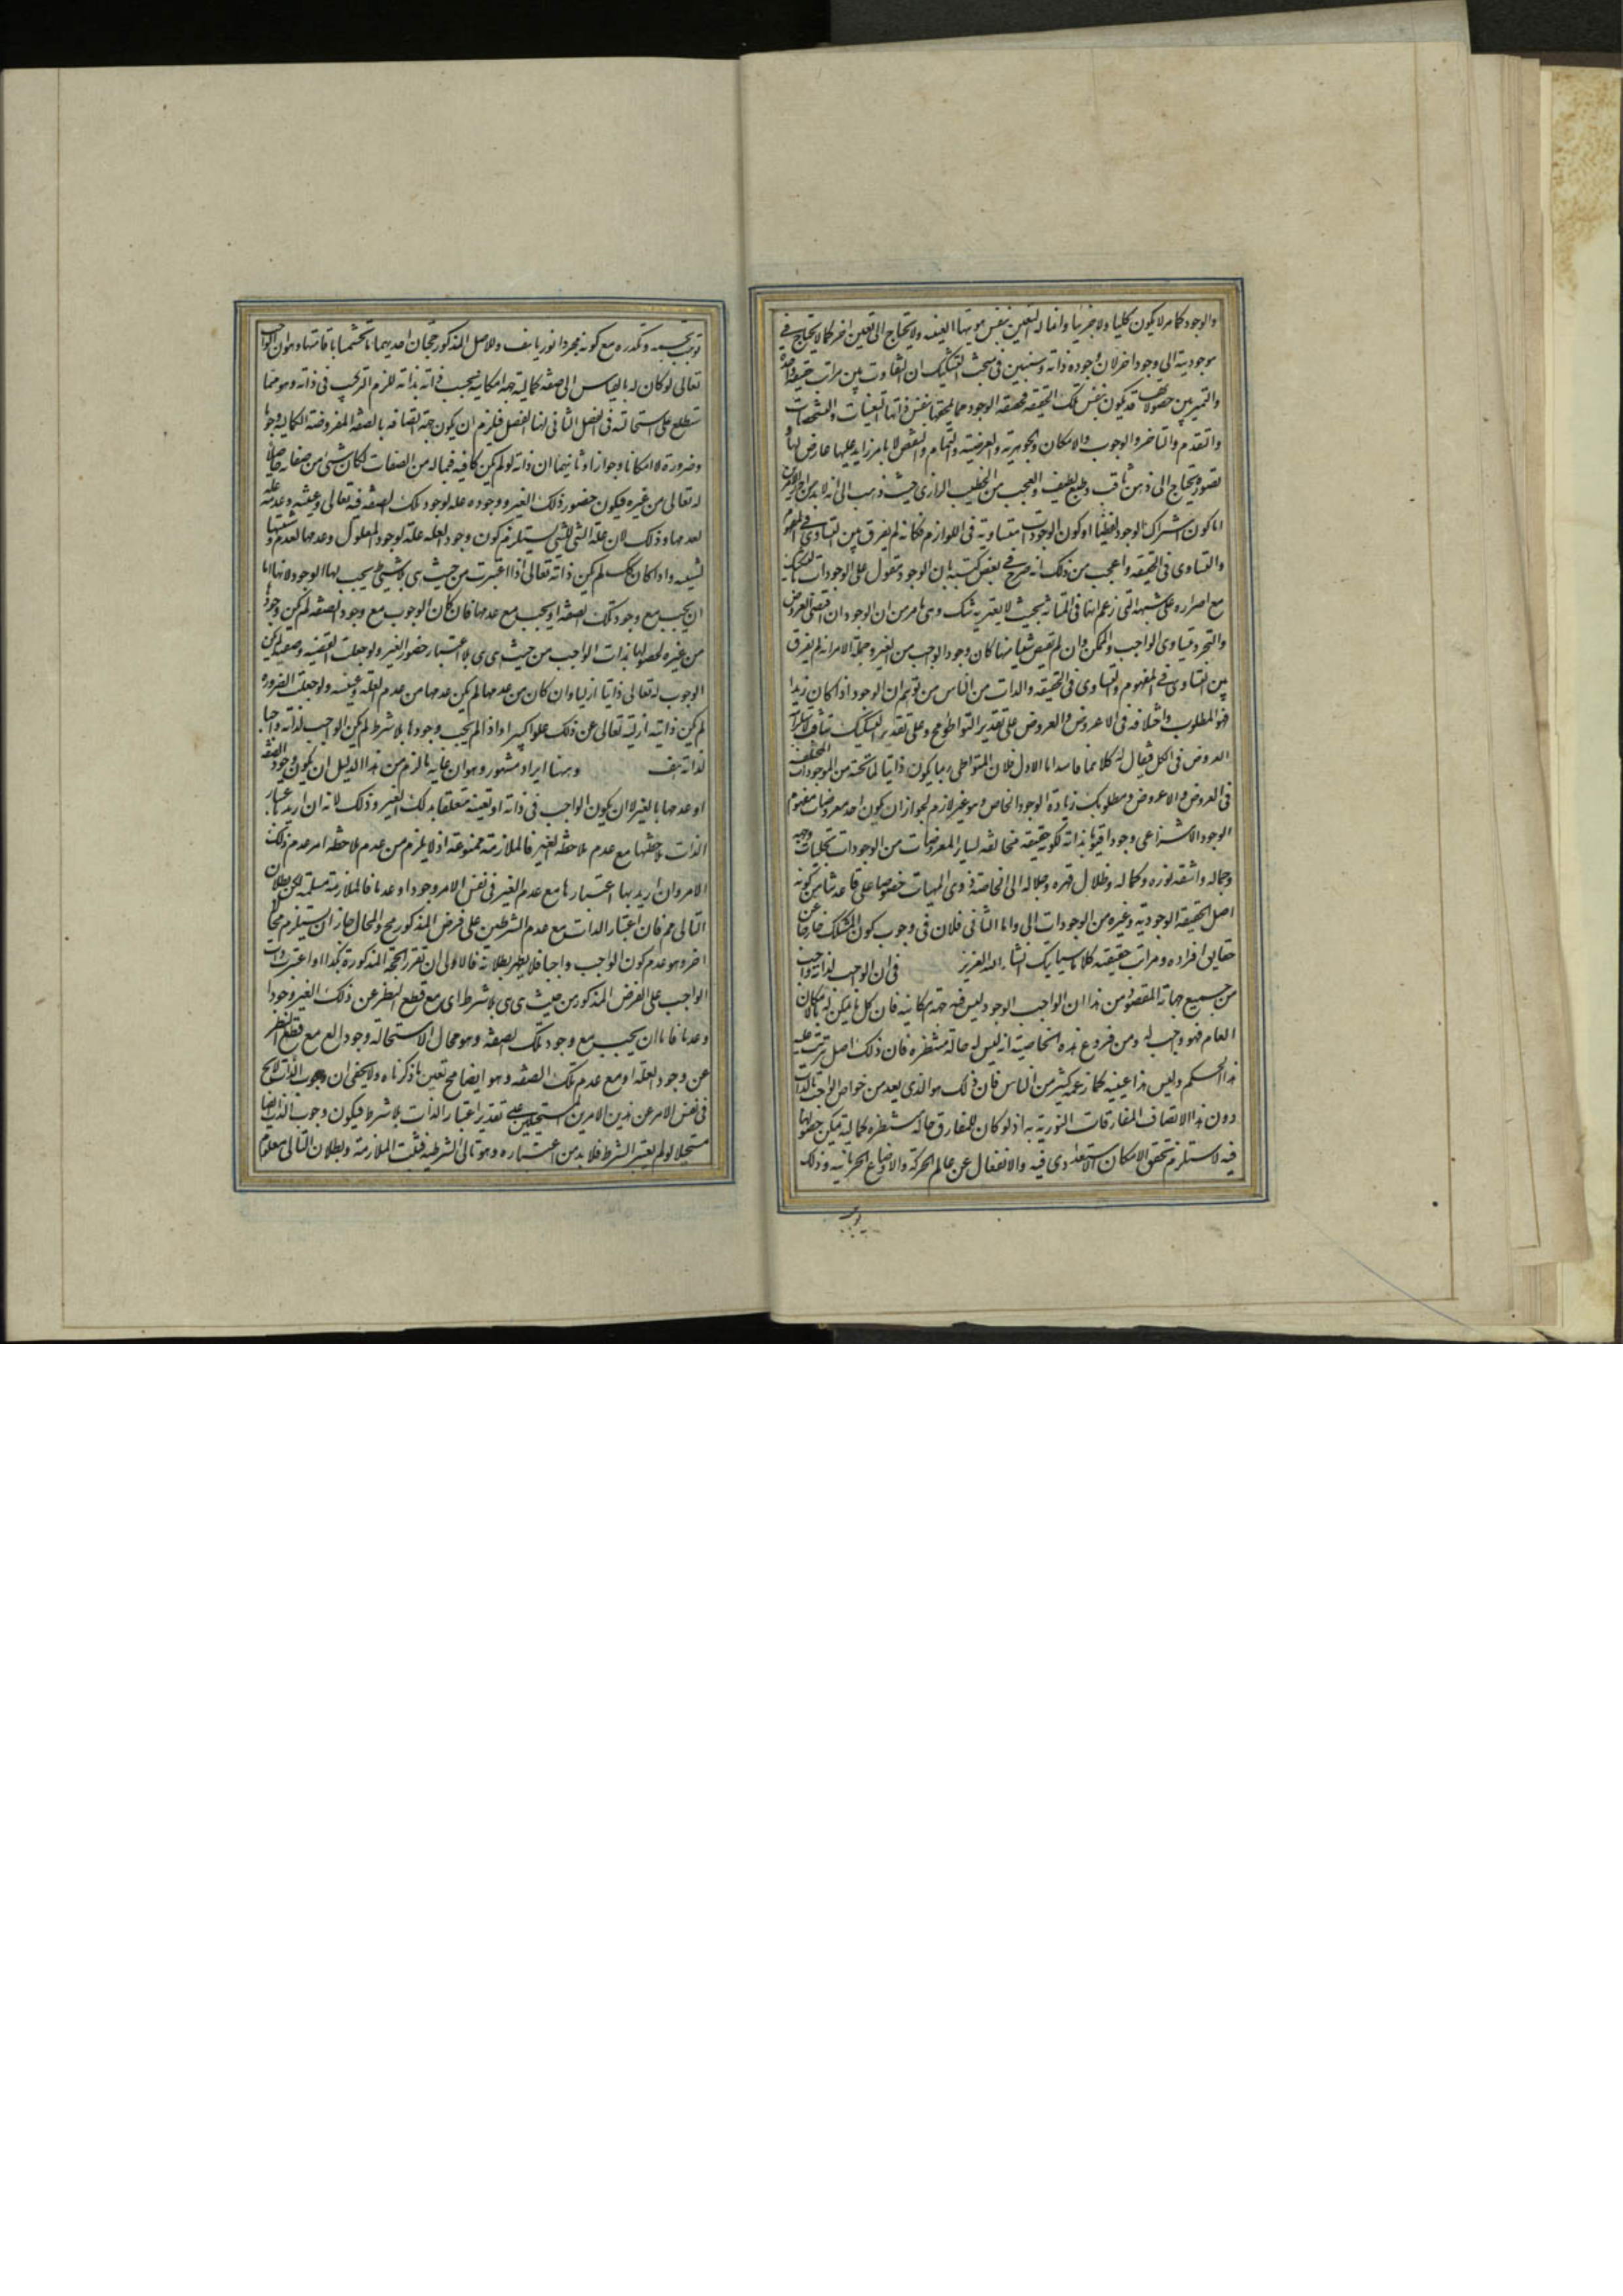 والوجود كما مر لا يكون كليا ولا جزئيا وانما له التعين بنفس هويتها العينيه ولا يحتاج الى تعين اخر كما لا يحتاج فى
موجودية الى وجود اخر لان وجوده ذاته وسنبين فى مبحث التشكيك ان التفاوت بين مراتب حقيقة واحدة
والتميز بين حصولاتها قد يكون بنفس تلك الحقيقه فحقيقه الوجود مما يلحقها بنفس ذاتها التعينات والتشخصات
والتقدم والتاخر والوجوب والامكان والجوهرية والعرضية والتمام والنقص لا بامر زايد عليها عارض لها و
تصوره يحتاج الى ذهن ثاقب وطبع لطيف والعجب من الخطيب الرازى حيث ذهب الى انه لا بد من احد الامرين
اما كون اشتراك الوجود لفظيا او كون الوجودات متساوية فى اللوازم فكانه لم يفرق بين التساوى فى المفهوم
والتساوى فى الحقيقه واعجب من ذلك انه صرح فى بعض كتبه بان الوجود مقول على الوجودات بالتشكيك
مع اصراره على شبهه التى زعم انها فى المتانه بحيث لا يعتريه شك وهى ما مر من ان الوجود ان اقتضى العروض
والتجرد فيساوى الواجب والممكن وان لم يقتض شيا منها كان وجود الواجب من الغير وجملة الامر انه لم يفرق
بين التساوى فى المفهوم والتساوى فى الحقيقه والذات من الناس من توهم ان الوجود اذا كان زيدا
فهو المطلوب واختلافه فى الاعروض والعروض على تقدير التواطو مح وعلى تقدير التشكيك
العروض فى الكل فيقال له كلا فاسد اما الاول فلان المتواطى ربما يكون ذاتيا لما تحته من الموجودات المختلفه
فى العروض والاعروض ومطلوبك زيادة الوجود الخاص وهو غير لازم لجواز ان يكون احد معروضات مفهوم
الوجود الانتزاعى وجودا قيوما بذاته لكونه حقيقه مخالفه لساير المعروضات من الوجودات تجليات وجهه
وجماله واشعه نوره وكماله وظلال قهره وجلاله الى الخاصه ذوى المهيات خصوصا على قاعدتنا من كونه
اصل الحقيقه الوجوديه وغيره من الوجودات الى واما الثانى فلان فى وجوب كون المشكك خارجا عن
حقايق افراده ومراتب حقيقته كلاما سياتيك انشاء الله العزيز فى ان الواجب لذاته واجب
من جميع جهاته المقصود من هذا ان الواجب الوجود ليس فيه جهة امكانيه فان كل ما يمكن له بالامكان
العام فهو واجب له ومن فروع هذه الخاصية انه ليس له حالة منتظره فان ذلك اصل يترتب عليه
هذا الحكم وليس هذا عينه كما زعمه كثير من الناس فان ذلك هو الذى يعد من خواص الواجب بالذات
دون هذا لاتصاف المفارقات النورية به اذ لو كان للمفارق حالة منتظره كمالية يمكن حصولها
فيه لاستلزم تحقق الامكان الاستعدادى فيه والانفعال عن عالم الحركة والاوضاع الجرمانيه وذلك
يوجب
يوجب تجسمه وتكدره مع كونه مجردا نوريا هف وللاصل المذكور حجتان احديهما ما تجشمنا باقامتها وهو ان الواجب
تعالى لو كان له بالقياس الى صفه كمالية جهه امكانيه بحسب ذاته بذاته للزم التركيب فى ذاته وهو مما
ستطلع على استحالته فى الفصل الثانى لهذا الفصل فيلزم ان يكون جهة اتصافه بالصفه المفروضة الكماليه وجوبا
وضرورة لا امكانا وجوازا وثانيهما ان ذاته لو لم يكن كافيه فيما له من الصفات لكان شئ من صفاته حاصلا
له تعالى من غيره فيكون حضور ذلك الغير ووجوده عله لوجود تلك الصفه فيه تعالى وغيبته وعدمه علة
لعدمها وذلك لان علة الشئ للشئ يستلزم كون وجود العله علة لوجود المعلول وعدمها لعدمه وشيئيتها
لشيئيه واذا كان كك لم يكن ذاته تعالى اذا اعتبرت من حيث هى بلا شرط يجب لها الوجود لانها اما
ان يجب مع وجود تلك الصفه او يجب مع عدمها فان كان الوجوب مع وجود الصفه لم يكن وجودها
من غيره لحصولها بذات الواجب من حيث هى هى بلا اعتبار حضور الغير ولو جعلت القضيه وصفيه لم يكن
الوجوب له تعالى ذاتيا ازليا وان كان من عدمها لم يكن عدمها من عدم العلة وغيبته ولو جعلت الضروره
لم يكن ذاتيه ازليه تعالى عن ذلك علوا كبيرا واذا لم يجب وجودها بلا شرط لم يكن الواجب لذاته واجبا
لذاته هف وههنا ايراد مشهور وهو ان غايه ما لزم من هذا الدليل ان يكون وجود الصفه
او عدمها بالغير لا ان يكون الواجب فى ذاته او تعينه متعلقا بذلك الغير وذلك لانه ان اريد باعتبار
الذات ملاحظتها مع عدم ملاحظة الغير فالملازمه ممنوعة اذ لا يلزم من عدم ملاحظة امر عدم ذلك
الامر وان اريد بها اعتبارها مع عدم الغير فى نفس الامر وجودا وعدما فالملازمة مسلمة لكن بطلان
التالى مم فان اعتبار الذات مع عدم الشرطين على فرض المذكور مح والمحال جاز ان يستلزم محالا
اخر وهو عدم كون الواجب واجبا فلا يظهر بطلانه فالاولى ان تقرر الحجه المذكورة هكذا اذا اعتبرت ذات
الواجب على الفرض المذكور من حيث هى هى بلا شرط اى مع قطع النظر عن ذلك الغير وجودا
وعدما فاما ان يجب مع وجود تلك الصفه وهو محال لاستحاله وجود المع مع قطع النظر
عن وجود العله او مع عدم تلك الصفه وهو ايضا مح بعين ما ذكرناه ولا يخفى ان وجوب الذات لا يخ
فى نفس الامر عن هذين الامرين المستحيلين على تقدير اعتبار الذات بلا شرط فيكون وجوب الذات ايضا
مستحيلا لو لم يعتبر الشرط فلا بد من اعتباره وهو تالى الشرطيه فثبت الملازمة وبطلان التالى معلوم